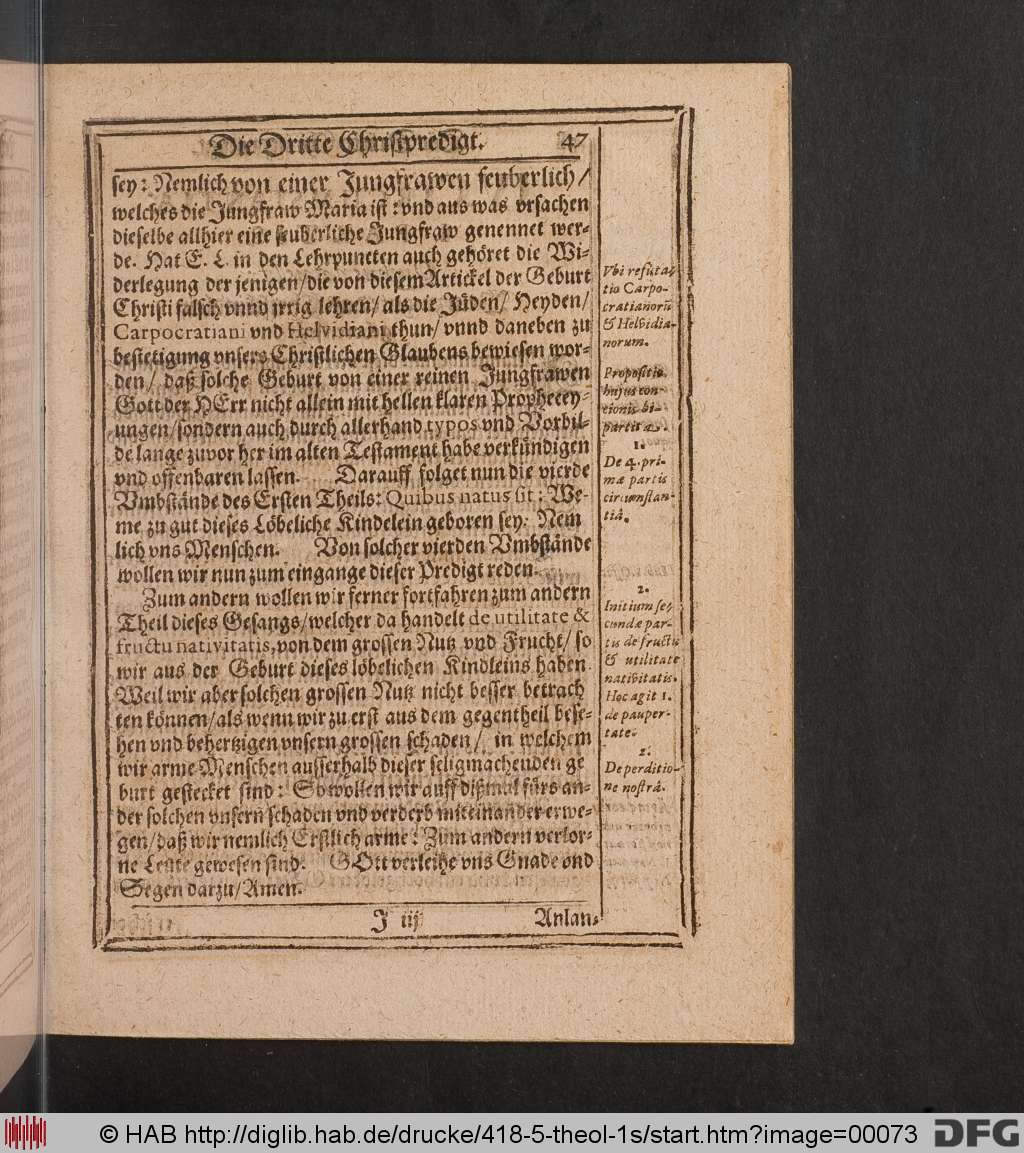 Die Dritte Christpredigt. 47
sey: Nemlich von einer Jungfrawen seuberlich/
welches die Jungfraw Maria ist: vnd aus was vrsachen
dieselbe allhier eine seuberliche Jungfraw genennet wer-
de. Hat E. L. in den Lehrpuncten auch gehöret die Wi-
derlegung der jenigen/die von diesem Artickel der Geburt
Christi falsch vnnd jrrig lehren/ als die Jüden/ Heyden/
Carpocratiani vnd Helvidiani thun/ vnnd daneben zu
bestetigung vnsers Christlichen Glaubens bewiesen wor-
den/ daß solche Geburt von einer reinen Jungfrawen
Gott der HErr nicht allein mit hellen klaren Propheceý-
ungen/sondern auch durch allerhand typos vnd Vorbil-
de lange zuvor her im alten Testament habe verkündigen
vnd offenbaren lassen. Darauff folget nun die vierde
Vmbstände des Ersten Theils: Quibus natus sit: We-
me zu gut dieses Löbeliche Kindelein geboren sey: Nem
lich vns Menschen. Von solcher vierden Vmbstände
wollen wir nun zum eingange dieser Predigt reden.
Zum andern wollen wir ferner fortfahren zum andern
Theil dieses Gesangs/welcher da handelt de utilitate &
fructu nativitatis, von dem grossen Nutz vnd Frucht/ so
wir aus der Geburt dieses löbelichen Kindleins haben.
Weil wir aber solchen grossen Nutz nicht besser betrach
ten können/als wenn wir zu erst aus dem gegentheil bese-
hen vnd behertzigen vnsern grossen schaden/ in welchem
wir arme Menschen ausserhalb dieser seligmachenden ge
burt gestecket sind: So wollen wir auff dißmal fürs an-
der solchen vnsern schaden vnd verderb miteinander erwe-
gen/daß wir nemlich Erstlich arme: Zum andern verlor-
ne Leute gewesen sind. GOtt verleihe vns Gnade vnd
Segen darzu/Amen.
J iij Anlan-
Vbi refuta-
tio Carpo-
cratianorū
& Helvidia-
norum.
Propositio
hujus con-
cionis bi-
partita.
1.
De 4. pri-
mæ partis
circumstan-
tiâ.
2.
Initium se-
cundæ par-
tis de fructu
& utilitate
nativitatis.
Hoc agit 1.
de pauper-
tate.
2.
De perditio-
ne nostrâ.
© HAB http://diglib.hab.de/drucke/418-5-theol-1s/start.htm?image=00073
DFG